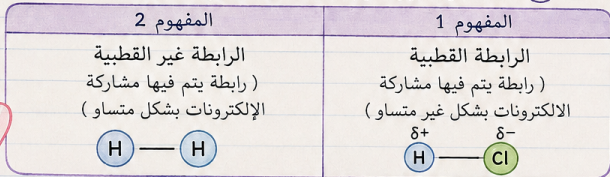 المفهوم 1
الرابطة القطبية
( رابطة يتم فيها مشاركة
الالكترونات بشكل غير متساو )
δ+ δ−
H Cl
المفهوم 2
الرابطة غير القطبية
( رابطة يتم فيها مشاركة
الإلكترونات بشكل متساو )
H H